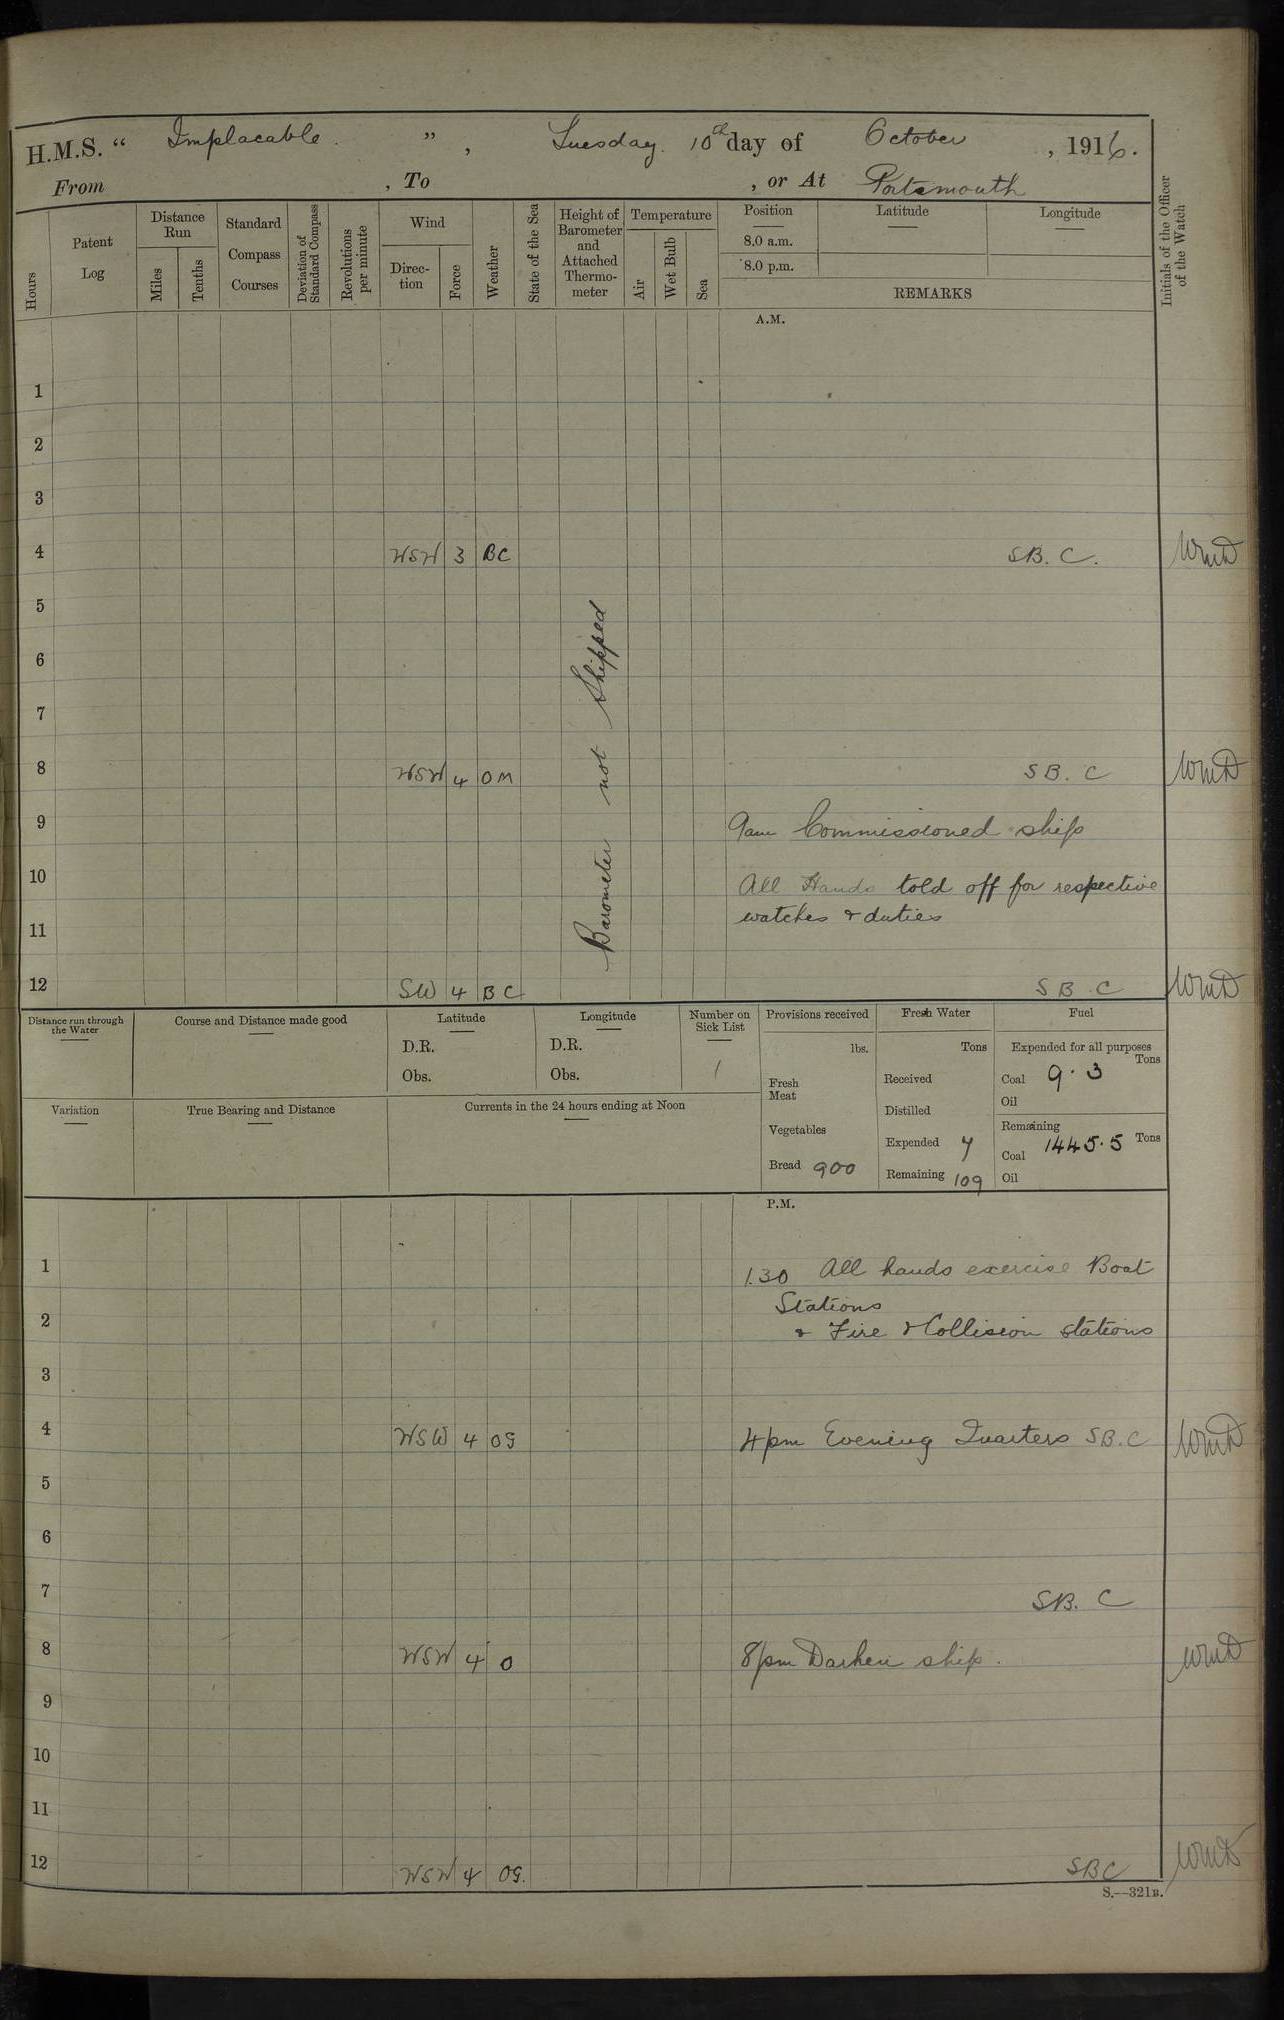 H.M.S. “ Implacable. ” , Tuesday. 10th day of October , 1916.
From , To , or At Portsmouth
Hours
Patent Log
Distance Run
Miles
Tenths
Standard Compass Courses
Deviation of Standard Compass
Revolutions per minute
Wind
Direc-tion
Force
Weather
State of the Sea
Height of Barometer and Attached Thermo-meter
Temperature
Air
Wet Bulb
Sea
Position
8.0 a.m.
8.0 p.m.
Latitude
Longitude
REMARKS
Initials of the Officer of the Watch
A.M.
1
2
3
4 WSW 3 BC SB. C.
5
6
7
8 WSW 4 OM SB. C
Barometer not Shipped
9 9am Commissioned ship
10 All Hands told off for respective
watches & duties
11
12 SW 4 BC S B C
Distance run through the Water
Course and Distance made good
Latitude
D.R.
Obs.
Longitude
D.R.
Obs.
Number on Sick List
1
Variation
True Bearing and Distance
Currents in the 24 hours ending at Noon
Provisions received
lbs.
Fresh Meat
Vegetables
Bread 900
Fresh Water
Tons
Received
Distilled
Expended 7
Remaining 109
Fuel
Expended for all purposes
Tons
Coal 9.3
Oil
Remaining
Coal 1445.5 Tons
Oil
P.M.
1 1.30 All hands exercise Boat
Stations
2 & Fire & Collision stations
3
4 WSW 4 OG 4pm Evening Quarters SB.C
5
6
7 SB. C
8 WSW 4 O 8pm Darken ship.
9
10
11
12 WSW 4 OG. SBC
S.—321B.